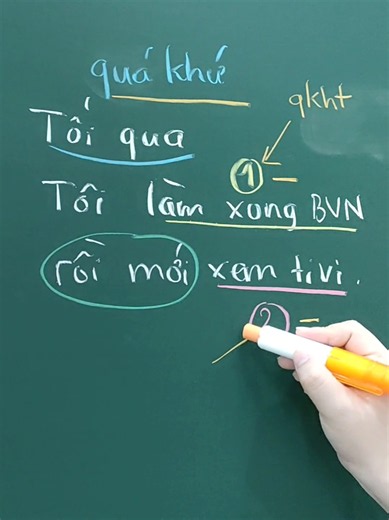 quá khứ
qkht
Tối qua
1
Tôi làm xong BVN
rồi mới xem tivi.
2